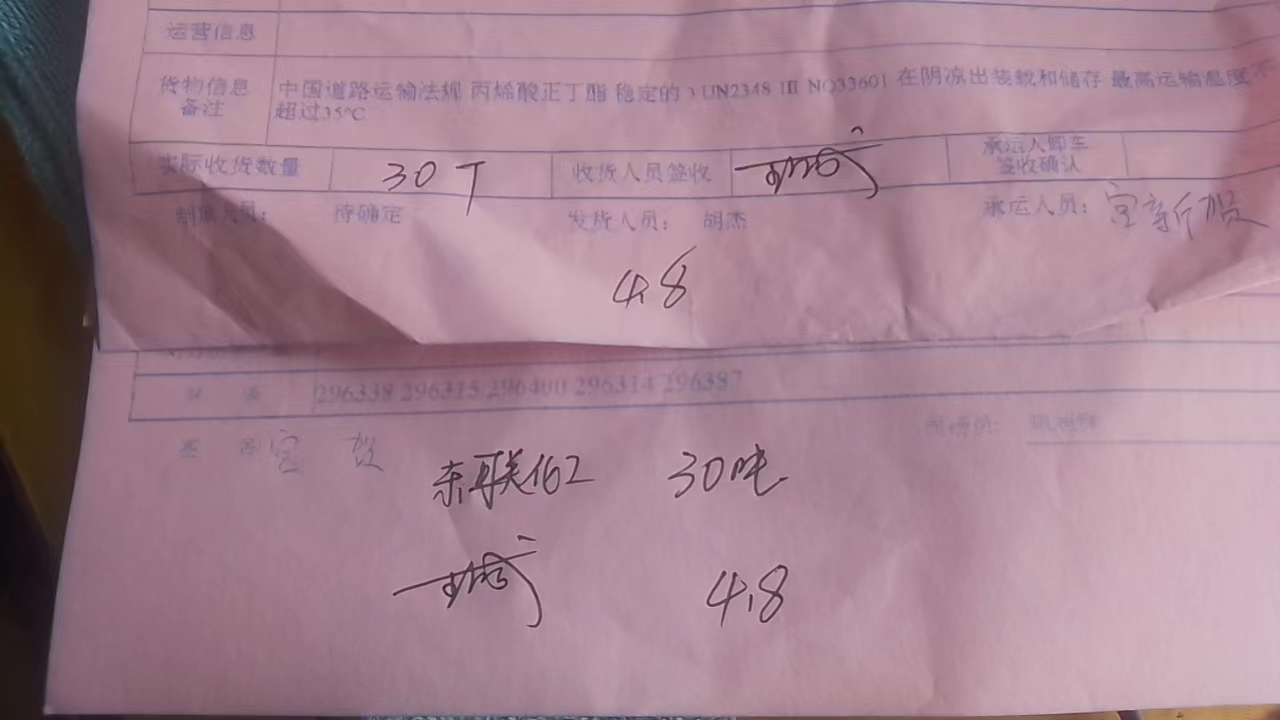 运营信息
货物信息备注 中国道路运输法规 丙烯酸正丁酯 稳定的 3 UN2348 III NO33601 在阴凉出装载和储存 最高运输温度不超过35℃
实际收货数量 30T 收货人员签收 承运人卸车签收确认
制单人员： 待确定 发货人员： 胡杰 承运人员： 宫新贺
4.8
296338 296315 296400 296314 296387
宫 贺
东联化工 30吨
4.8